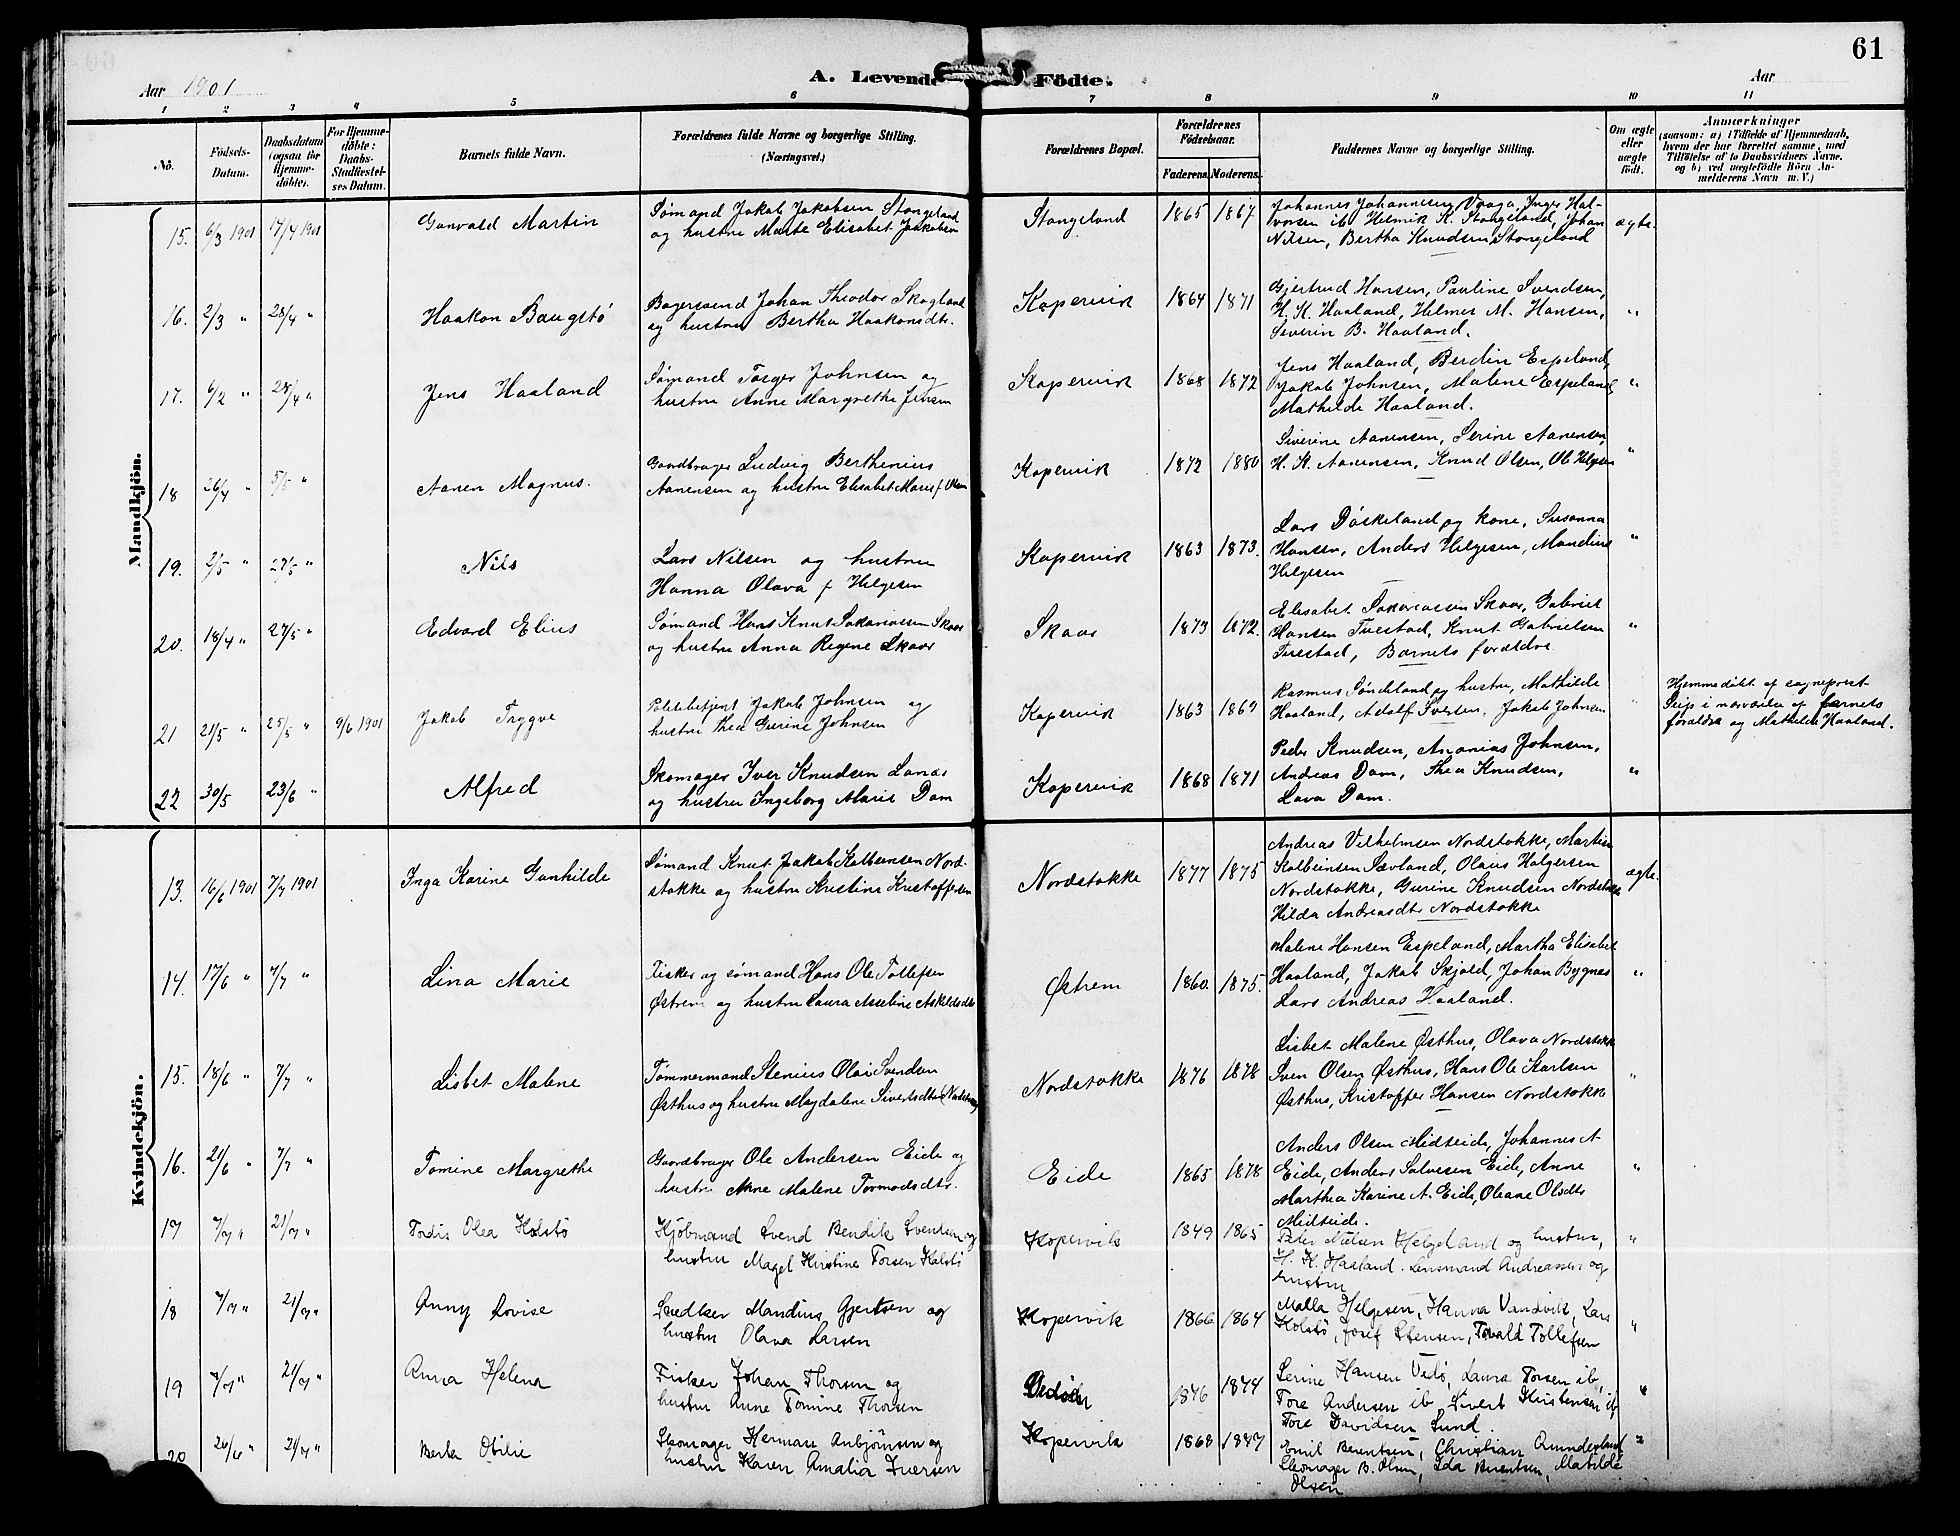 61
Aar 1901 A. Levende Födte. Aar
1 2 3 4 5 6 7 8 9 10 11
No. Födsels-Datum. Daabsdatum (ogsaa for Hjemme-döbte). For Hjemme-döbte: Daabs-Stadfæstel-ses Datum. Barnets fulde Navn. Forældrenes fulde Navne og borgerlige Stilling. (Næringsvei.) Forældrenes Bopæl. Forældrenes Födselsaar. Faderens. Moderens. Faddernes Navne og borgerlige Stilling. Om ægte eller uægte födt. Anmærkninger (saasom: a) i Tilfælde af Hjemmedaab, hvem der har forrettet samme, med Tilföielse af to Daabsvidners Navne, og b) ved uægtefödte Börn An-melderens Navn m. V.)
Mandkjön.
15. 6/3 1901 17/4 1901 Gunvald Martin Sømand Jakob Jakobsen Stangeland Stangeland 1865 1867 Johannes Johannesen Vaaga, Inger Hal-
og hustru Marte Elisabet Jakobsen vorsen ib Helmik K. Stangeland, Johan ægte.
Nilsen, Bertha Knudsen Stangeland
16. 2/3 " 28/4 " Haakon Baugstø Bagersvend Johan Theodor Skogland Kopervik 1864 1871 Gjertrud Hansen, Pauline Svendsen,
og hustru Bertha Haakonsdtr. H. K. Haaland, Helmer M. Hansen, "
Severin B. Haaland.
17. 6/2 " 28/4 " Jens Haaland Sømand Torger Johnsen og Kopervik 1868 1872 Jens Haaland, Berdin Espeland,
hustru Anne Margrethe Jensen Jakob Johnsen, Malene Espeland "
Mathilde Haaland.
18 26/4 " 5/5 " Aanen Magnus. Gaardbruger Ludvig Berthinius Kopervik 1872 1880 Siverine Aanensen, Serine Aanensen,
Aanensen og hustru Elisabet Marie f. Olsen H. K. Aanensen, Knud Olsen, Ole Helgesen "
19. 2/5 " 27/5 " Nils Lars Nilsen og hustru Kopervik 1863 1873. Lars Døskeland og kone, Susanna
Hanna Olava f Helgesen Hansen, Anders Helgesen, Mandine "
Helgesen
20. 18/4 " 27/5 " Edvard Elius Sømand Hans Knut Sakariassen Skaar Skaar 1873 1872. Elisabet Sakariassen Skaar, Gabriel
og hustru Anna Regine Skaar Hansen Tuestad, Knut Gabrielsen "
Tuestad, Barnets forældre
21 21/5 " 25/5 " 9/6 1901 Jakob Trygve Politibetjent Jakob Johnsen og Kopervik 1863 1869 Rasmus Søndeland og hustru, Mathilde " Hjemmedøbt af sogneprest
hustru Thea Gurine Johnsen Haaland, Adolf Iversen. Jakob Johnsen Seip i nærværelse af barnets
forældre og Mathilde Haaland.
22 30/5 23/6 " Alfred Skomager Iver Knudsen Lanes Kopervik 1868 1871 Peder Knudsen, Ananias Johnsen,
og hustru Ingeborg Marie Dam Andreas Dam, Thea Knudsen, "
Lava Dam.
Kvindekjön.
13. 16/6 1901 7/7 1901 Inga Karine Gunhilde Sømand Knut Jakob Kolbeinsen Nord- Nordstokke 1877 1875 Andreas Vilhelmsen Nordstokke, Martin
stokke og hustru Kristine Kristoffersen Kolbeinsen Sævland, Olaus Holgersen ægte.
Nordstokke, Gurine Knudsen Nordstokke
Hilda Andreasdtr Nordstokke
14. 17/6 " 7/7 " Lina Marie Fisker og sømand Hans Ole Tollefsen Østrem 1860. 1875. Malene Hansen Espeland, Martha Elisabet
Østrem og hustru Laura Asseline Askildsdtr Haaland, Jakob Skjold, Johan Bygnes "
Lars Andreas Haaland.
15. 18/6 " 7/7 " Lisbet Malene Tømmermand Stenius Olai Svendsen Nordstokke 1876 1878 Lisbet Malene Østhus, Olava Nordstokke
Østhus og hustru Magdalene Sivertsdtr (Nordstokke) Sven Olsen Østhus, Hans Ole Karlsen "
Østhus, Kristoffer Hansen Nordstokke
16. 21/6 " 7/7 " Tomine Margrethe Gaardbruger Ole Andersen Eide og Eide 1865 1878 Anders Olsen Midteide, Johannes A-
hustru Anne Malene Tormodsdtr. Eide, Anders Salvesen Eide, Anne "
Marthea Karine A. Eide, Oleane Olsdtr
Midteide.
17 7/7 " 21/7 " Tordis Olea Holstø Kjöbmand Svend Bendik Svendsen og Kopervik 1849 1865 Peder Nielsen Helgeland og hustru, "
hustru Magel Kirstine Torsen Holstø H. K. Haaland. Lensmand Andreassen og
hustru
18 7/7 " 21/7 " Anny Lovise Snedker Mandius Gjertsen og Kopervik 1866 1864 Malla Helgesen, Hanna Vandvik, Lars
hustru Olava Larsen Holstø, Josef Stensen, Tovald Tollefsen "
19 7/7 " 21/7 " Anna Helena Fisker Johan Thorsen og Vedøen 1846 1844 Serine Hansen Vedø, Laura Torsen ib,
hustru Anne Tomine Thorsen Tore Andersen ib, Sivert Kristensen ib, "
Tore Davidsen Sund.
20 20/6 " 21/7 " Berta Otilie Skomager Herman Anbjönsen og Kopervik 1868 1877 Emil Berentsen, Christian Amundesland "
hustru Karen Amalia Iversen Skomager B. Olsen, Ida Berentsen, Matilde
Olsen